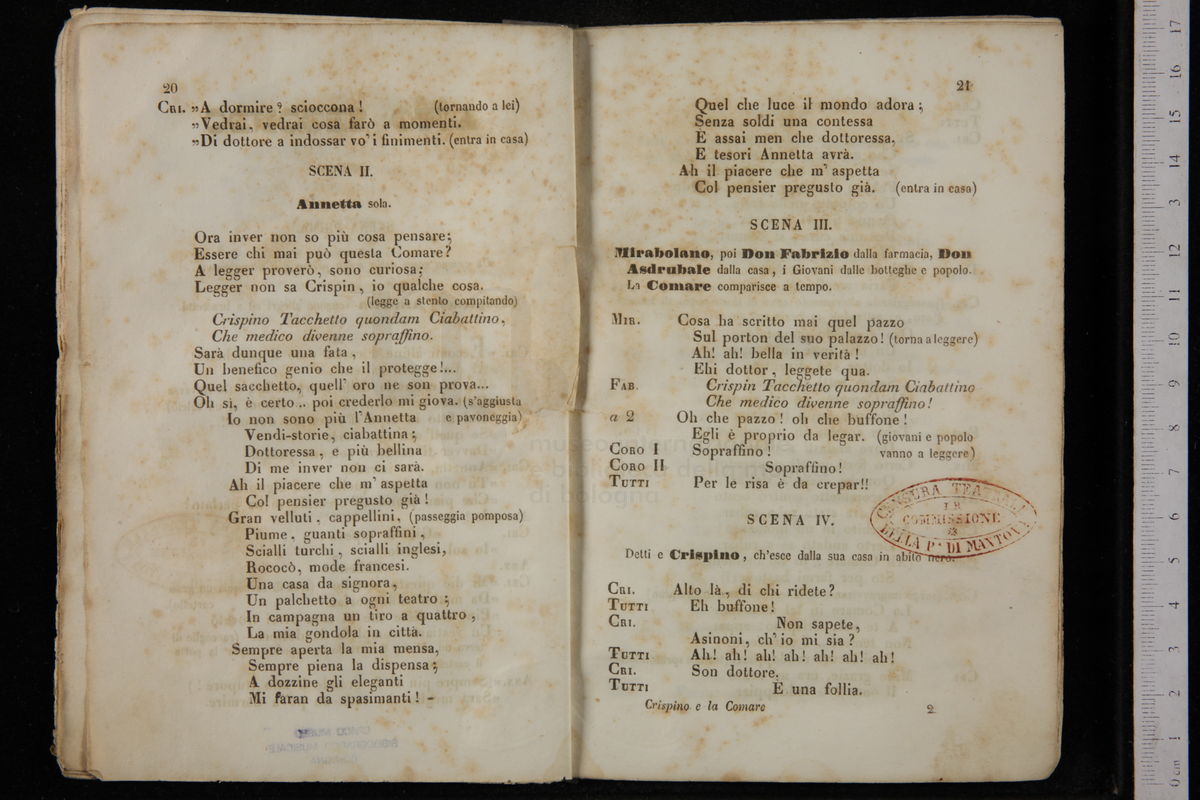 20
CRI. »A dormire? scioccona! (tornando a lei)
»Vedrai, vedrai cosa farò a momenti.
»Di dottore a indossar vo' i finimenti. (entra in casa)
SCENA II.
Annetta sola.
Ora inver non so più cosa pensare;
Essere chi mai può questa Comare?
A legger proverò, sono curiosa;
Legger non sa Crispin, io qualche cosa.
(legge a stento compitando)
Crispino Tacchetto quondam Ciabattino,
Che medico divenne sopraffino.
Sarà dunque una fata,
Un benefico genio che il protegge!...
Quel sacchetto, quell' oro ne son prova...
Oh sì, è certo .. poi crederlo mi giova. (s'aggiusta
Io non sono più l'Annetta e pavoneggia)
Vendi-storie, ciabattina;
Dottoressa, e più bellina
Di me inver non ci sarà.
Ah il piacere che m' aspetta
Col pensier pregusto già!
Gran velluti, cappellini, (passeggia pomposa)
Piume, guanti sopraffini,
Scialli turchi, scialli inglesi,
Rococò, mode francesi.
Una casa da signora,
Un palchetto a ogni teatro;
In campagna un tiro a quattro,
La mia gondola in città.
Sempre aperta la mia mensa,
Sempre piena la dispensa;
A dozzine gli eleganti
Mi faran da spasimanti! -
21
Quel che luce il mondo adora;
Senza soldi una contessa
E assai men che dottoressa,
E tesori Annetta avrà.
Ah il piacere che m' aspetta
Col pensier pregusto già. (entra in casa)
SCENA III.
Mirabolano, poi Don Fabrizio dalla farmacia, Don
Asdrubale dalla casa, i Giovani dalle botteghe e popolo.
La Comare comparisce a tempo.
MIR. Cosa ha scritto mai quel pazzo
Sul porton del suo palazzo! (torna a leggere)
Ah! ah! bella in verità!
Ehi dottor, leggete qua.
FAB. Crispin Tacchetto quondam Ciabattino
Che medico divenne sopraffino!
a 2 Oh che pazzo! oh che buffone!
Egli è proprio da legar. (giovani e popolo
CORO I Sopraffino! vanno a leggere)
CORO II Sopraffino!
TUTTI Per le risa è da crepar!!
CENSURA TEATRALE
I R
COMMISSIONE
DELLA P.a DI MANTOVA
SCENA IV.
Detti e Crispino, ch'esce dalla sua casa in abito nero.
CRI. Alto là, di chi ridete?
TUTTI Eh buffone!
CRI. Non sapete,
Asinoni, ch' io mi sia?
TUTTI Ah! ah! ah! ah! ah! ah! ah!
CRI. Son dottore.
TUTTI È una follia.
Crispino e la Comare 2
museo internazionale
e biblioteca della musica
di bologna
0 cm 1 2 3 4 5 6 7 8 9 10 11 12 13 14 15 16 17